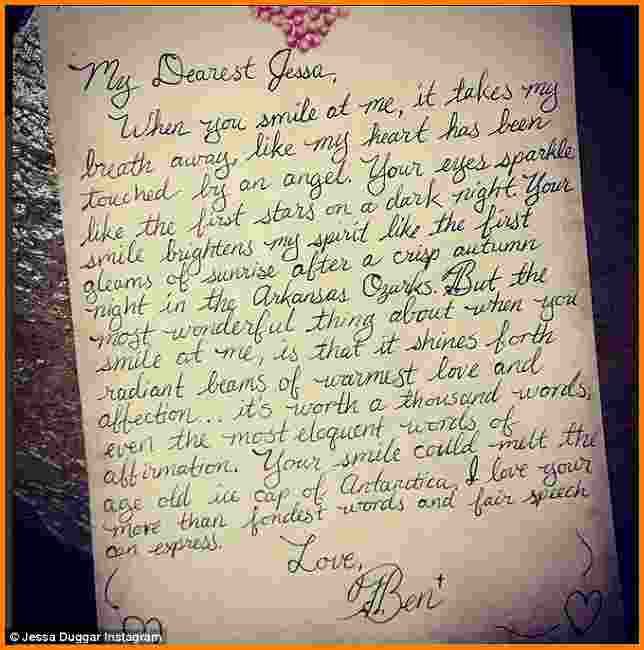 My Dearest Jessa,
When you smile at me, it takes my
breath away, like my heart has been
touched by an angel. Your eyes sparkle
like the first stars on a dark night. Your
smile brightens my spirit like the first
gleams of sunrise after a crisp autumn
night in the Arkansas Ozarks. But the
most wonderful thing about when you
smile at me, is that it shines forth
radiant beams of warmest love and
affection... it's worth a thousand words,
even the most eloquent words of
affirmation. Your smile could melt the
age old ice cap of Antarctica. I love your
more than fondest words and fair speech
can express.
Love,
Ben
© Jessa Duggar Instagram